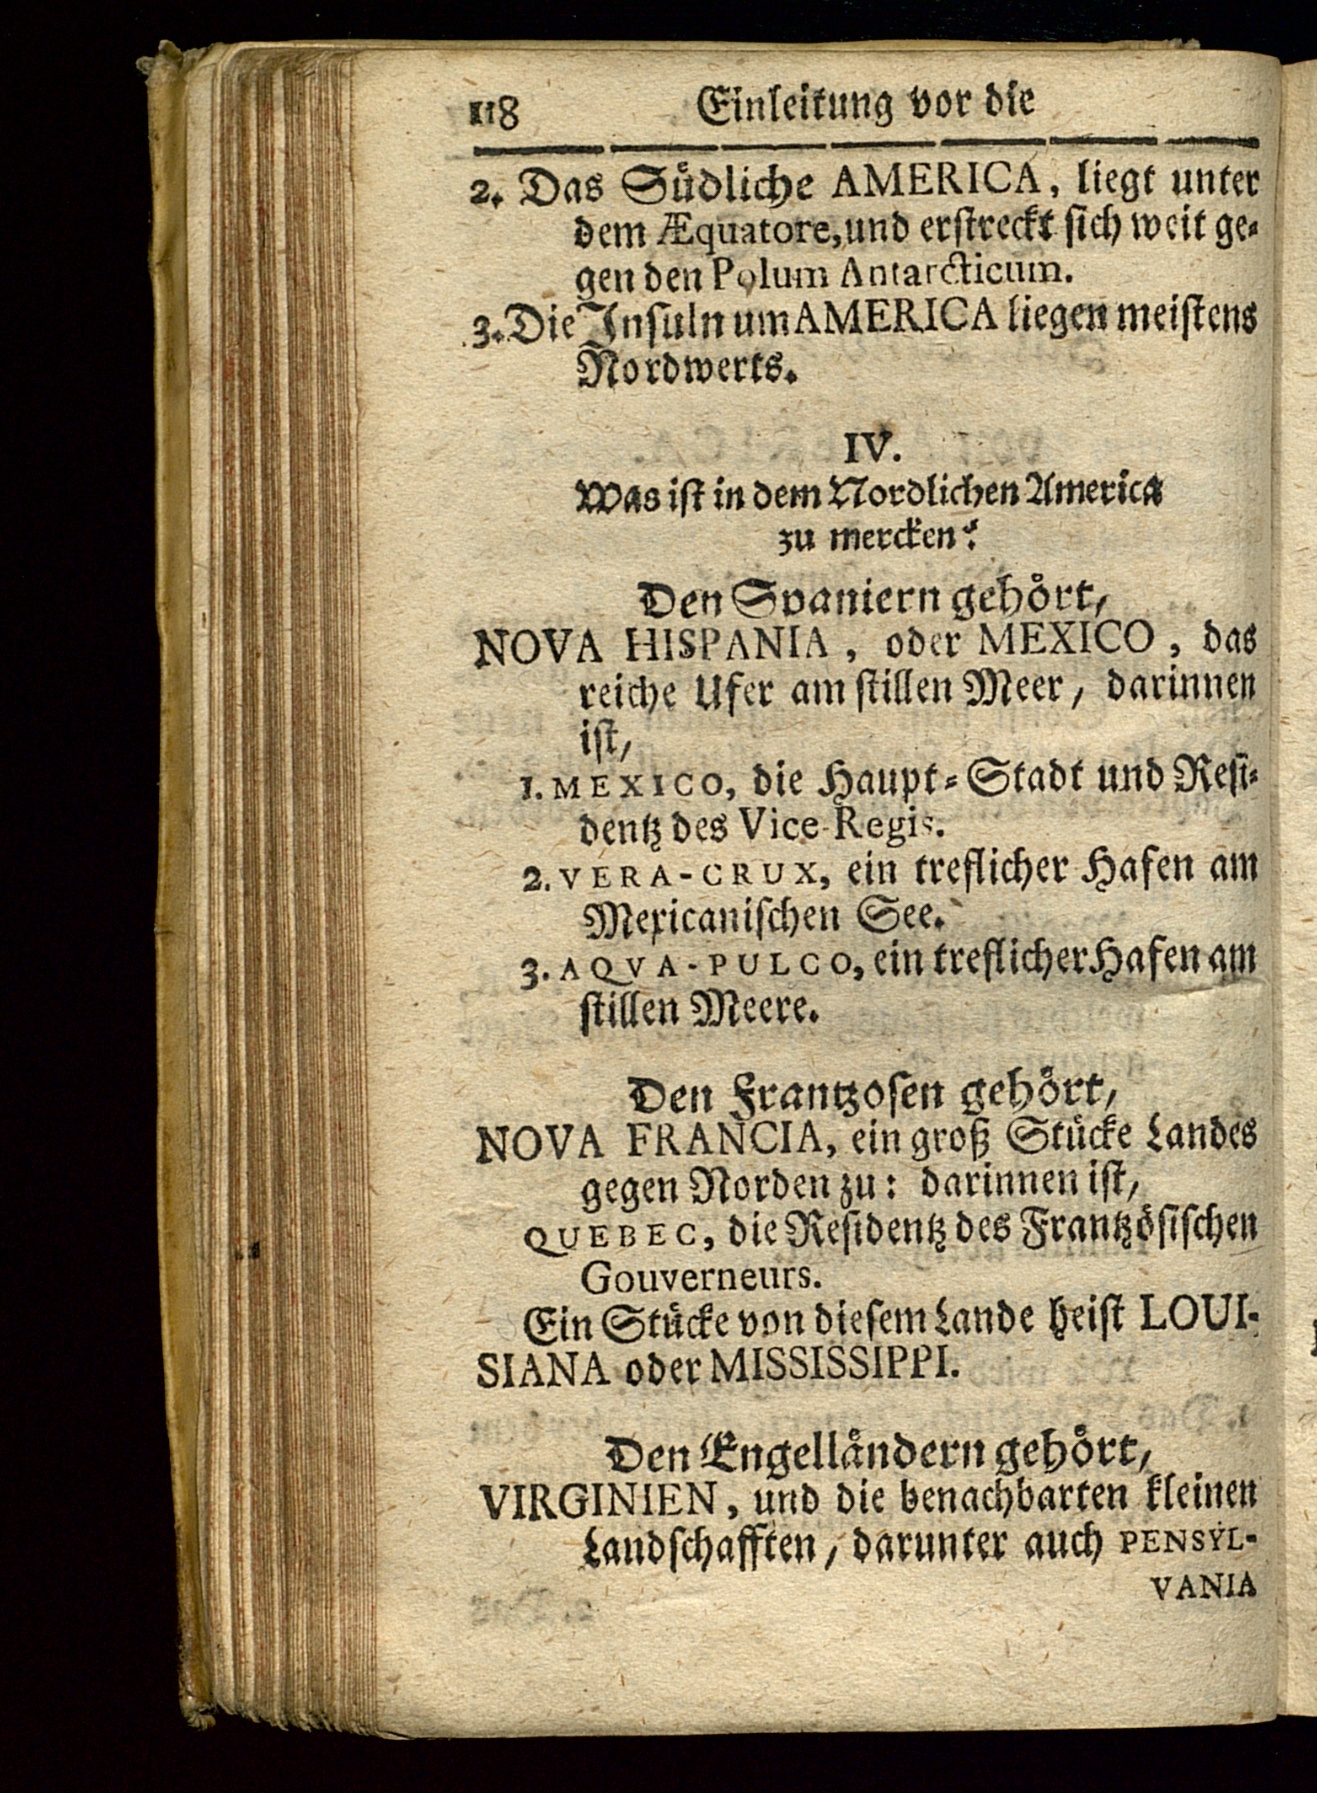 118 Einleitung vor die
2. Das Südliche AMERICA, liegt unter
dem Æquatore, und erstreckt sich weit ge-
gen den Polum Antarcticum.
3. Die Insuln um AMERICA liegen meistens
Nordwerts.
IV.
Was ist in dem Nordlichen America
zu mercken?
Den Spaniern gehört,
NOVA HISPANIA, oder MEXICO, das
reiche Ufer am stillen Meer, darinnen
ist,
1. MEXICO, die Haupt-Stadt und Resi-
dentz des Vice-Regis.
2. VERA-CRUX, ein treflicher Hafen am
Mexicanischen See.
3. AQVA-PULCO, ein treflicher Hafen am
stillen Meere.
Den Frantzosen gehört,
NOVA FRANCIA, ein groß Stücke Landes
gegen Norden zu: darinnen ist,
QUEBEC, die Residentz des Frantzösischen
Gouverneurs.
Ein Stücke von diesem Lande heist LOUI-
SIANA oder MISSISSIPPI.
Den Engelländern gehört,
VIRGINIEN, und die benachbarten kleinen
Landschafften, darunter auch PENSYL-
VANIA